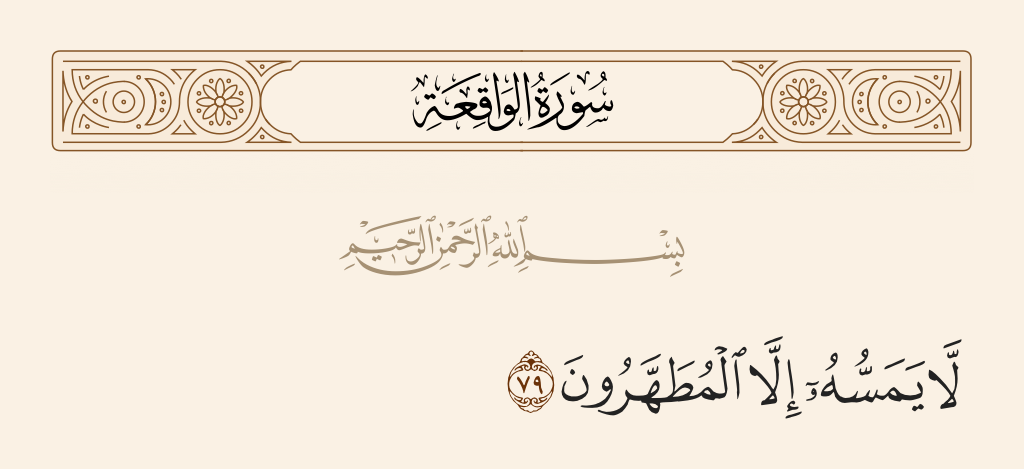 سُورَةُ الوَاقِعَةِ
بِسْمِ ٱللَّهِ ٱلرَّحْمَٰنِ ٱلرَّحِيمِ
لَّا يَمَسُّهُۥٓ إِلَّا ٱلْمُطَهَّرُونَ ٧٩